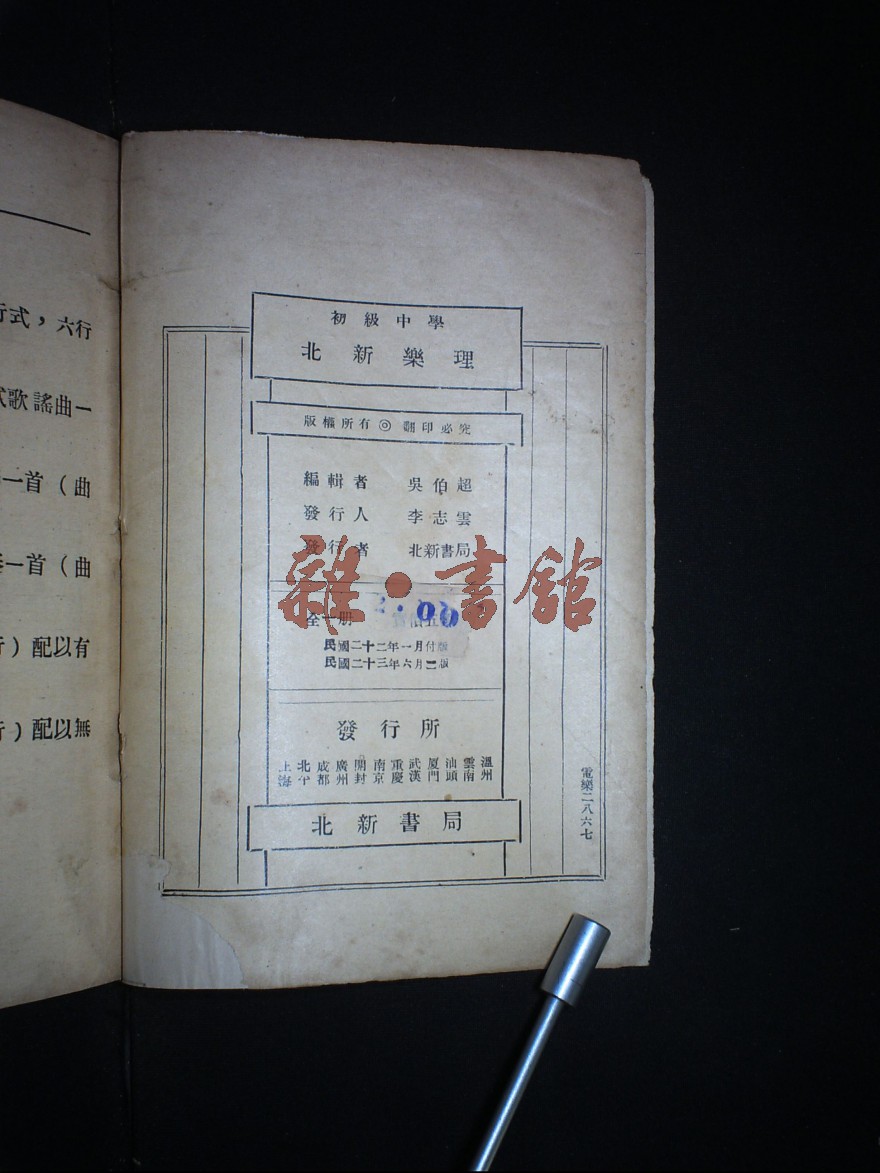 初級中學
北新樂理
版權所有 ◎ 翻印必究
編輯者 吳伯超
發行人 李志雲
發行者 北新書局
雜·書館
全一册
民國二十二年一月付版
民國二十三年六月二版
發行所
上海 北平 成都 廣州 開封 南京 重慶 武漢 厦門 汕頭 雲南 溫州
北新書局
電樂二八六七
行式，六行
式歌謠曲一
一首（曲
一首（曲
）配以有
）配以無